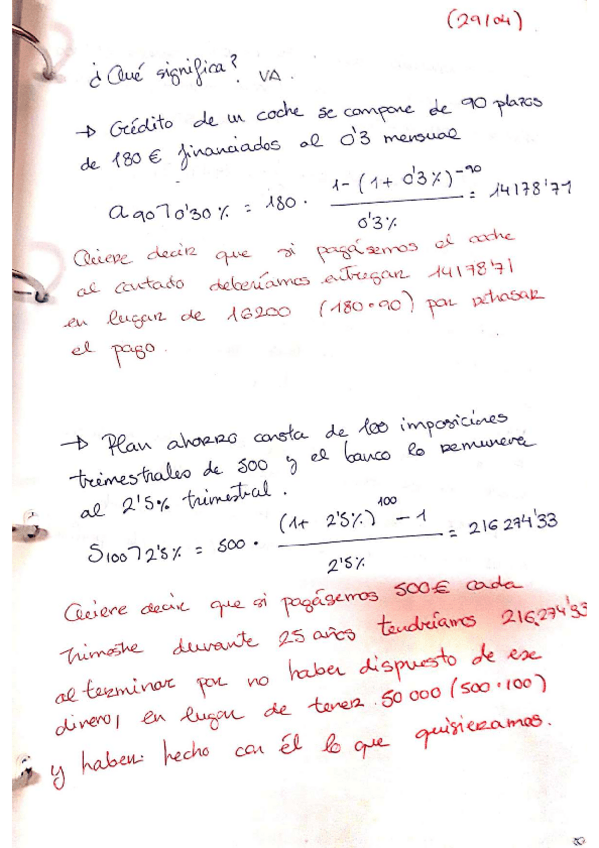 (29/04)
¿Qué significa? VA.
→ Crédito de un coche se compone de 90 plazos
de 180 € financiados al 0'3 mensual
a 90⌉0'30% = 180 · 1-(1+0'3%)^-90 / 0'3% = 14178'71
Quiere decir que si pagásemos el coche
al contado deberíamos entregar 14178'71
en lugar de 16200 (180·90) por retrasar
el pago.
→ Plan ahorro consta de 100 imposiciones
trimestrales de 500 y el banco lo remunera
al 2'5% trimestral.
S100⌉2'5% = 500 · (1+2'5%)^100 - 1 / 2'5% = 216274'33
Quiere decir que si pagásemos 500€ cada
trimestre durante 25 años tendríamos 216,274'33
al terminar por no haber dispuesto de ese
dinero, en lugar de tener 50000 (500·100)
y haber hecho con él lo que quisiéramos.